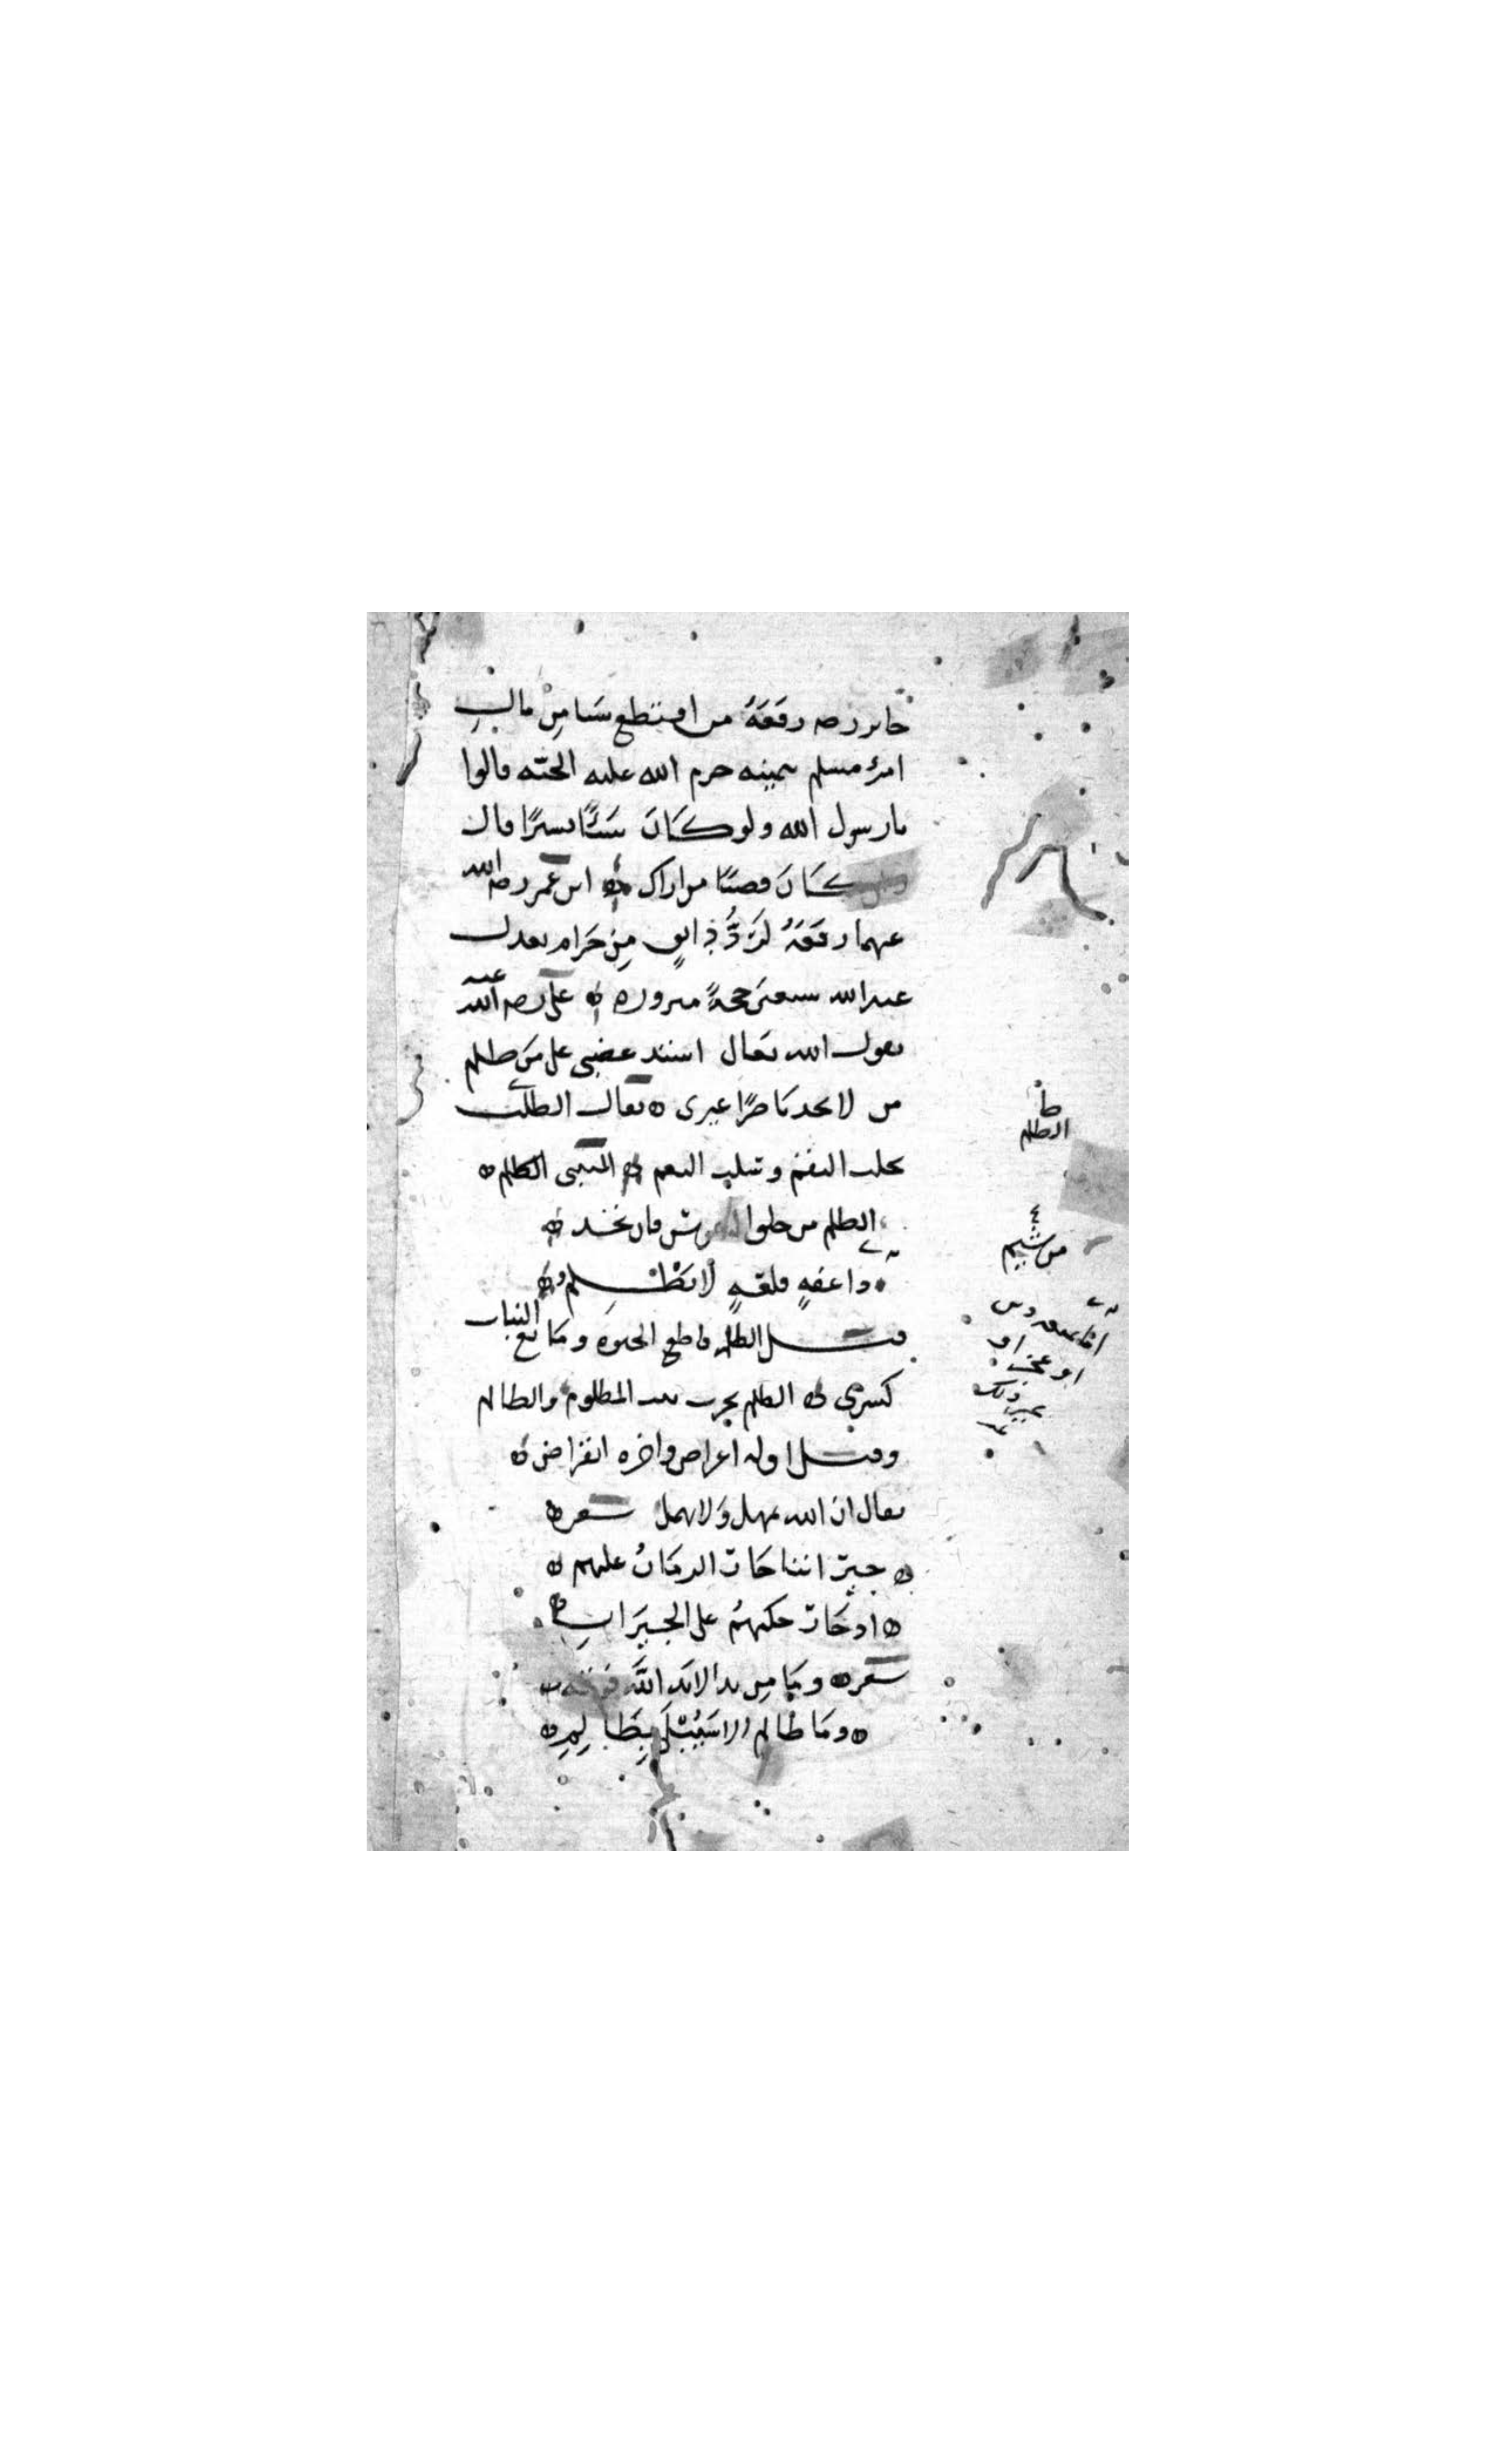 جابر رضه رفعه من اقتطع شيئا مِنْ مالِ
امرئ مسلم بيمينه حرم الله عليه الجنة قالوا
يارسول الله ولو كَانَ شَيْئًا يسيرًا قال
وان كَانَ قضيبًا من اراك ابن عُمر رضى الله
عنهما رفعَهُ لَرَدُّ دَانِقٍ مِن حَرَامٍ يعدل
عند الله سبعين حجةً مبرورة علي رضى الله عنه
يقول الله تعالى اشتد غضبي على مَن ظلم
من لا يجد نَاصرًا غيرى يقال الظلم
يجلب النقم ويسلب النعم المتنبى الظلم
الظلم من خلق النفوس فان تجد
ذا عفةٍ فلعلةٍ لا يَظْلِمُ
قيل الظلم قاطع الحيوة ومَانع النبات
كسرى الظلم يخرب بيت المظلوم والظالم
وقيل اوله اعراض واخره انقراض
يقال ان الله يمهل وَلا يهمل شعر
جيرانُنا جَارَ الزمَانُ عليهم
اذ جَارَ حكمهُم على الجيرَانِ
شعر ومَا مِن يد الا يَد اللهِ فَوقها
ومَا ظَالم الا سَيُبْلَى بِظَالِمِ
ط
الظلم
من شيم
او عجز او
غير ذلك